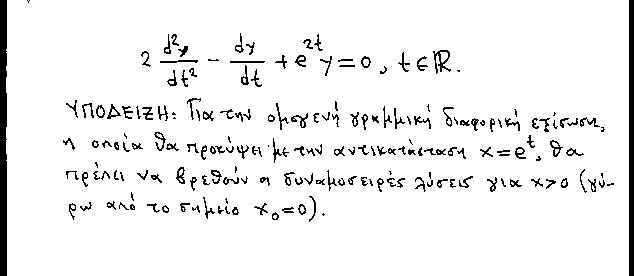 2 d²y/dt² - dy/dt + e^{2t} y = 0, t ∈ ℝ.
ΥΠΟΔΕΙΞΗ: Για την ομογενή γραμμική διαφορική εξίσωση,
η οποία θα προκύψει με την αντικατάσταση x = e^t, θα
πρέπει να βρεθούν οι δυναμοσειρές λύσεις για x>0 (γύ-
ρω από το σημείο x₀=0).